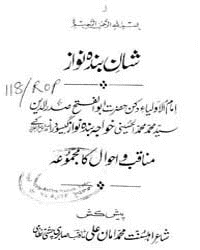 بسم اللہ الرحمن الرحیم
شان بندہ نواز
118/ROP
امام الاولیاء دکن حضرت ابوالفتح صدرالدین
سید محمد محمد الحسینی خواجہ بندہ نواز گیسو دراز
مناقب و احوال کا مجموعہ
پیش کش
شاعر اہلسنت محمد امان علی ثاقب صابری چشتی